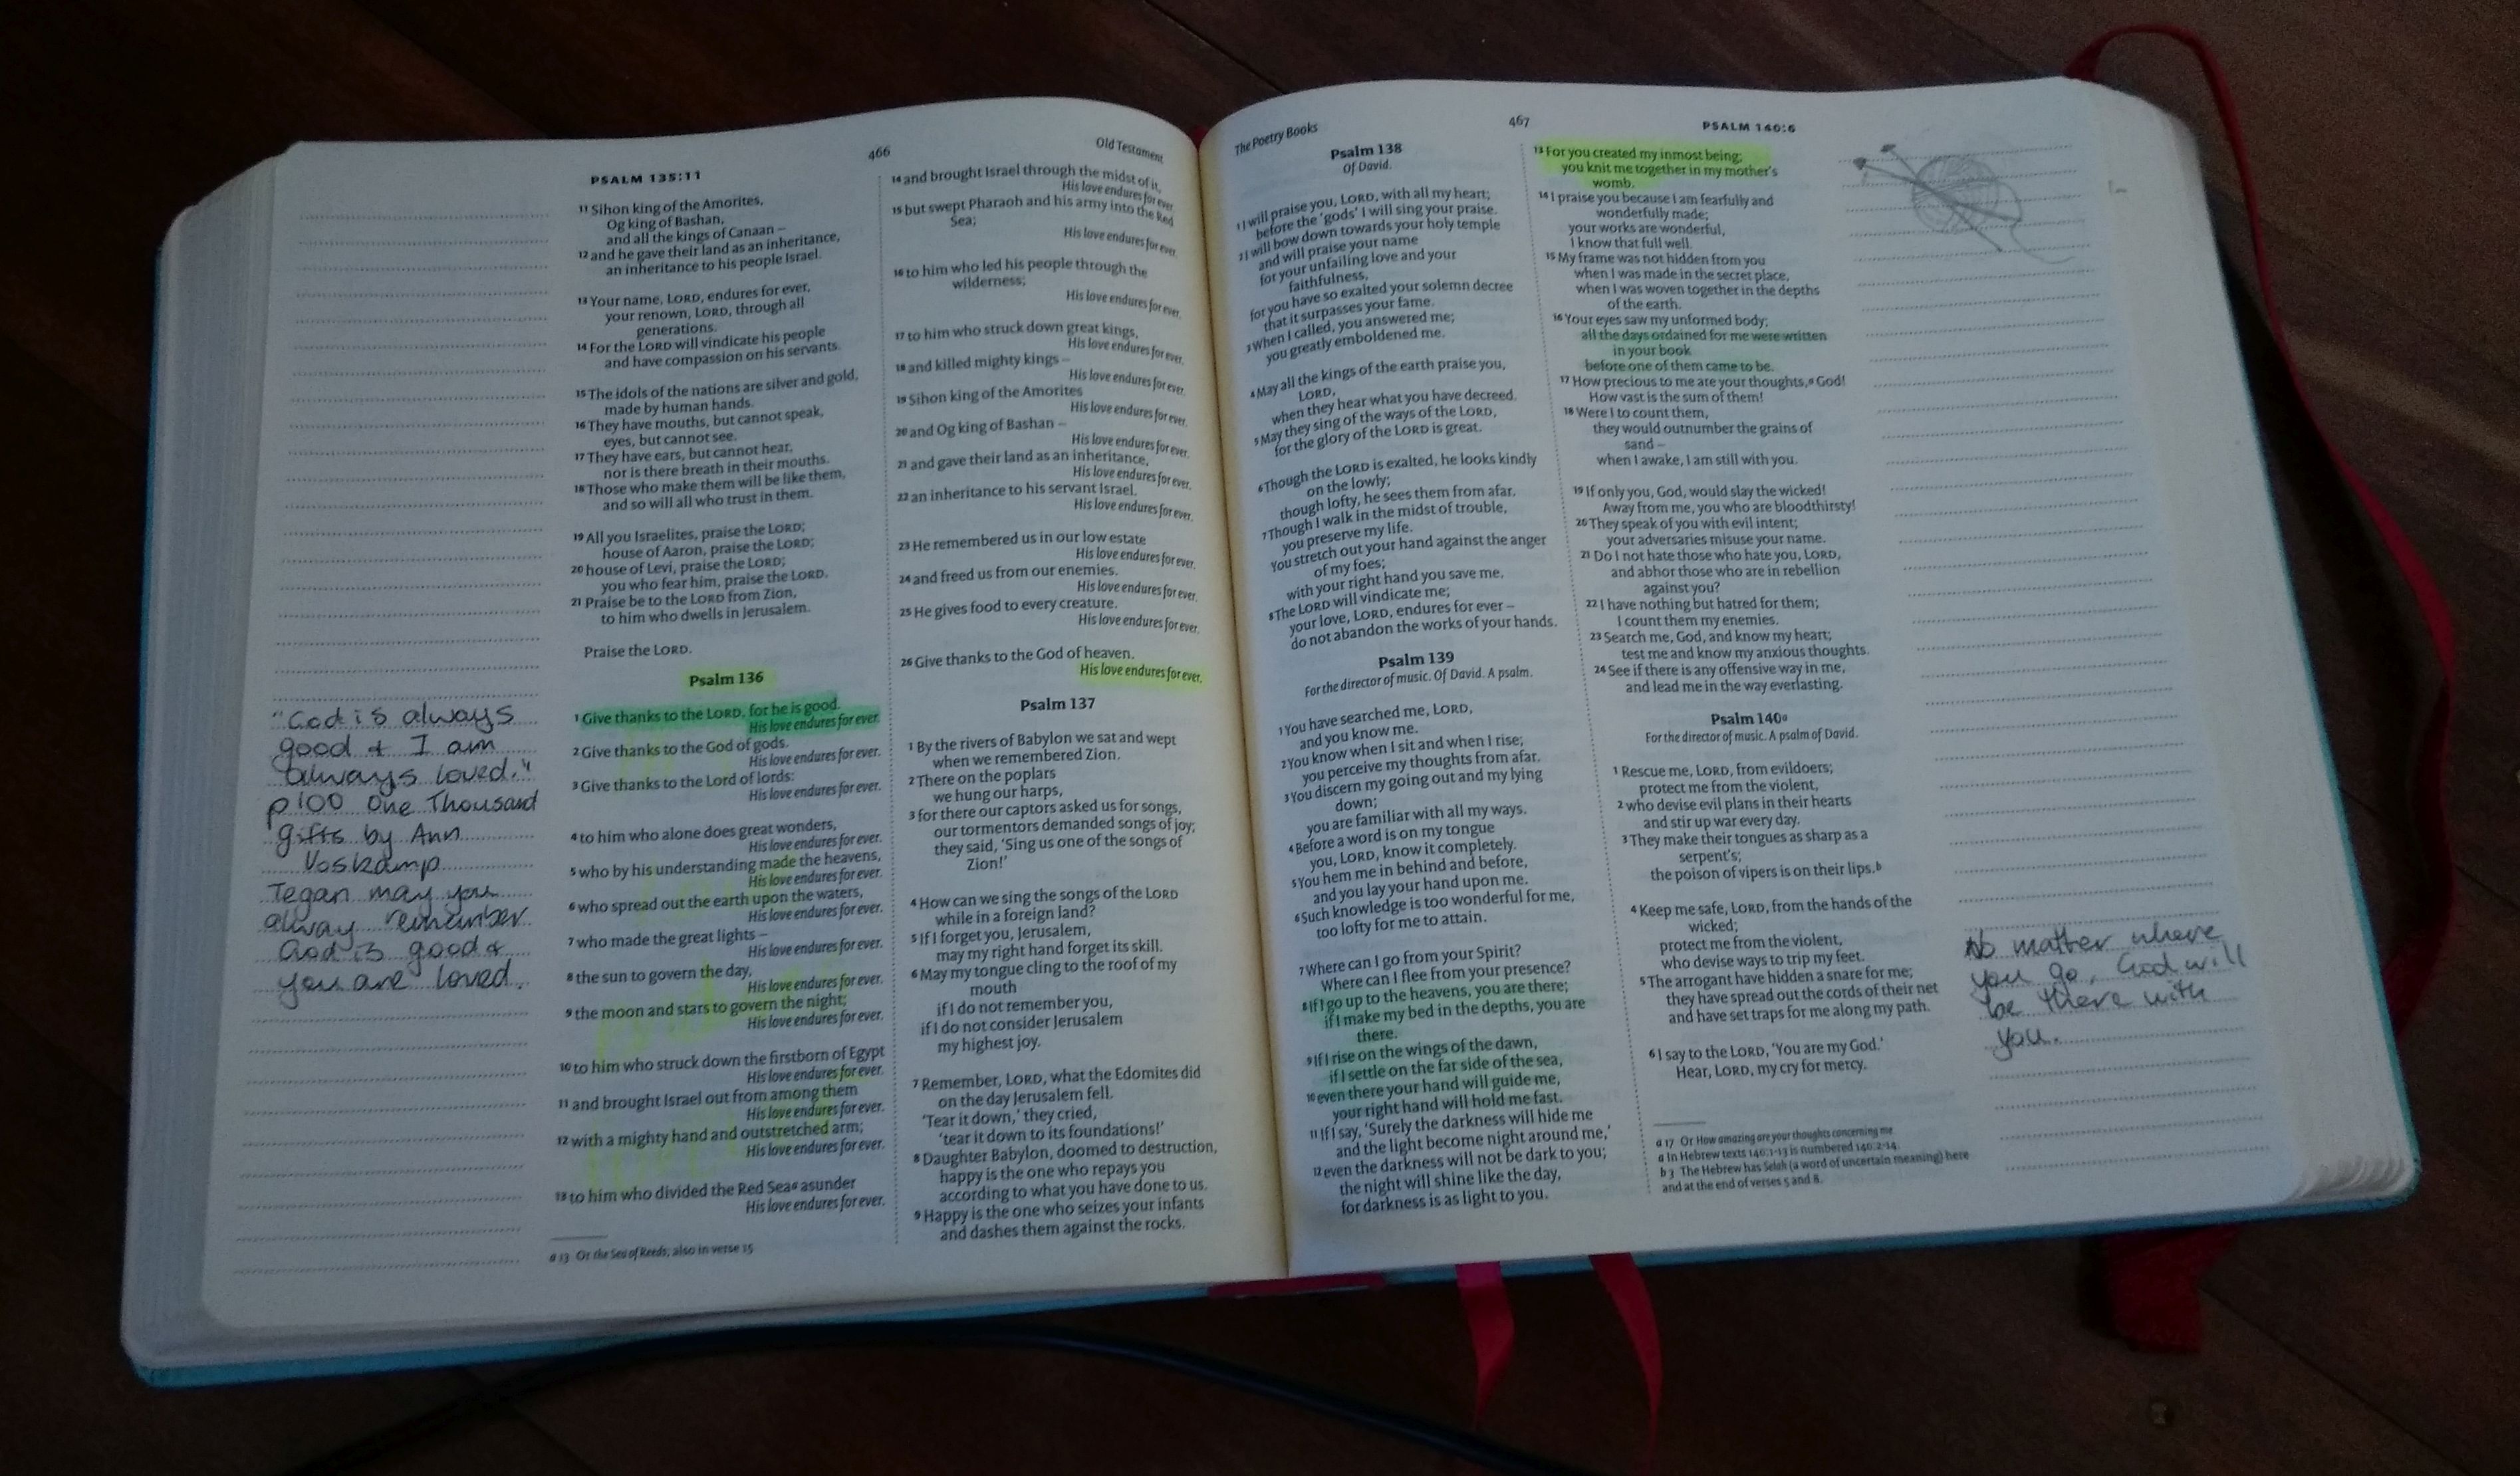 466
Old Testament
PSALM 135:11
11 Sihon king of the Amorites,
Og king of Bashan,
and all the kings of Canaan –
12 and he gave their land as an inheritance,
an inheritance to his people Israel.
13 Your name, LORD, endures for ever,
your renown, LORD, through all
generations.
14 For the LORD will vindicate his people
and have compassion on his servants.
15 The idols of the nations are silver and gold,
made by human hands.
16 They have mouths, but cannot speak,
eyes, but cannot see.
17 They have ears, but cannot hear,
nor is there breath in their mouths.
18 Those who make them will be like them,
and so will all who trust in them.
19 All you Israelites, praise the LORD;
house of Aaron, praise the LORD;
20 house of Levi, praise the LORD;
you who fear him, praise the LORD.
21 Praise be to the LORD from Zion,
to him who dwells in Jerusalem.
Praise the LORD.
Psalm 136
1 Give thanks to the LORD, for he is good.
His love endures for ever.
2 Give thanks to the God of gods.
His love endures for ever.
3 Give thanks to the Lord of lords:
His love endures for ever.
4 to him who alone does great wonders,
His love endures for ever.
5 who by his understanding made the heavens,
His love endures for ever.
6 who spread out the earth upon the waters,
His love endures for ever.
7 who made the great lights –
His love endures for ever.
8 the sun to govern the day,
His love endures for ever.
9 the moon and stars to govern the night;
His love endures for ever.
10 to him who struck down the firstborn of Egypt
His love endures for ever.
11 and brought Israel out from among them
His love endures for ever.
12 with a mighty hand and outstretched arm;
His love endures for ever.
13 to him who divided the Red Sea a asunder
His love endures for ever.
a 13 Or the Sea of Reeds; also in verse 15
"God is always
good & I am
always loved."
p100 One Thousand
gifts by Ann
Voskamp
Tegan may you
alway remember
God is good &
you are loved.
14 and brought Israel through the midst of it,
His love endures for ever.
15 but swept Pharaoh and his army into the Red
Sea;
His love endures for ever.
16 to him who led his people through the
wilderness;
His love endures for ever.
17 to him who struck down great kings,
His love endures for ever.
18 and killed mighty kings –
His love endures for ever.
19 Sihon king of the Amorites
His love endures for ever.
20 and Og king of Bashan –
His love endures for ever.
21 and gave their land as an inheritance,
His love endures for ever.
22 an inheritance to his servant Israel.
His love endures for ever.
23 He remembered us in our low estate
His love endures for ever.
24 and freed us from our enemies.
His love endures for ever.
25 He gives food to every creature.
His love endures for ever.
26 Give thanks to the God of heaven.
His love endures for ever.
Psalm 137
1 By the rivers of Babylon we sat and wept
when we remembered Zion.
2 There on the poplars
we hung our harps,
3 for there our captors asked us for songs,
our tormentors demanded songs of joy;
they said, 'Sing us one of the songs of
Zion!'
4 How can we sing the songs of the LORD
while in a foreign land?
5 If I forget you, Jerusalem,
may my right hand forget its skill.
6 May my tongue cling to the roof of my
mouth
if I do not remember you,
if I do not consider Jerusalem
my highest joy.
7 Remember, LORD, what the Edomites did
on the day Jerusalem fell.
'Tear it down,' they cried,
'tear it down to its foundations!'
8 Daughter Babylon, doomed to destruction,
happy is the one who repays you
according to what you have done to us.
9 Happy is the one who seizes your infants
and dashes them against the rocks.
The Poetry Books
467
PSALM 140:6
Psalm 138
Of David.
1 I will praise you, LORD, with all my heart;
before the 'gods' I will sing your praise.
2 I will bow down towards your holy temple
and will praise your name
for your unfailing love and your
faithfulness,
for you have so exalted your solemn decree
that it surpasses your fame.
3 When I called, you answered me;
you greatly emboldened me.
4 May all the kings of the earth praise you,
LORD,
when they hear what you have decreed.
5 May they sing of the ways of the LORD,
for the glory of the LORD is great.
6 Though the LORD is exalted, he looks kindly
on the lowly;
though lofty, he sees them from afar.
7 Though I walk in the midst of trouble,
you preserve my life.
You stretch out your hand against the anger
of my foes;
with your right hand you save me.
8 The LORD will vindicate me;
your love, LORD, endures for ever –
do not abandon the works of your hands.
Psalm 139
For the director of music. Of David. A psalm.
1 You have searched me, LORD,
and you know me.
2 You know when I sit and when I rise;
you perceive my thoughts from afar.
3 You discern my going out and my lying
down;
you are familiar with all my ways.
4 Before a word is on my tongue
you, LORD, know it completely.
5 You hem me in behind and before,
and you lay your hand upon me.
6 Such knowledge is too wonderful for me,
too lofty for me to attain.
7 Where can I go from your Spirit?
Where can I flee from your presence?
8 If I go up to the heavens, you are there;
if I make my bed in the depths, you are
there.
9 If I rise on the wings of the dawn,
if I settle on the far side of the sea,
10 even there your hand will guide me,
your right hand will hold me fast.
11 If I say, 'Surely the darkness will hide me
and the light become night around me,'
12 even the darkness will not be dark to you;
the night will shine like the day,
for darkness is as light to you.
13 For you created my inmost being;
you knit me together in my mother's
womb.
14 I praise you because I am fearfully and
wonderfully made;
your works are wonderful,
I know that full well.
15 My frame was not hidden from you
when I was made in the secret place,
when I was woven together in the depths
of the earth.
16 Your eyes saw my unformed body;
all the days ordained for me were written
in your book
before one of them came to be.
17 How precious to me are your thoughts, a God!
How vast is the sum of them!
18 Were I to count them,
they would outnumber the grains of
sand –
when I awake, I am still with you.
19 If only you, God, would slay the wicked!
Away from me, you who are bloodthirsty!
20 They speak of you with evil intent;
your adversaries misuse your name.
21 Do I not hate those who hate you, LORD,
and abhor those who are in rebellion
against you?
22 I have nothing but hatred for them;
I count them my enemies.
23 Search me, God, and know my heart;
test me and know my anxious thoughts.
24 See if there is any offensive way in me,
and lead me in the way everlasting.
Psalm 140 a
For the director of music. A psalm of David.
1 Rescue me, LORD, from evildoers;
protect me from the violent,
2 who devise evil plans in their hearts
and stir up war every day.
3 They make their tongues as sharp as a
serpent's;
the poison of vipers is on their lips. b
4 Keep me safe, LORD, from the hands of the
wicked;
protect me from the violent,
who devise ways to trip my feet.
5 The arrogant have hidden a snare for me;
they have spread out the cords of their net
and have set traps for me along my path.
6 I say to the LORD, 'You are my God.'
Hear, LORD, my cry for mercy.
a 17 Or How amazing are your thoughts concerning me
a In Hebrew texts 140:1-13 is numbered 140:2-14.
b 3 The Hebrew has Selah (a word of uncertain meaning) here
and at the end of verses 5 and 8.
No matter where
you go, God will
be there with
you.